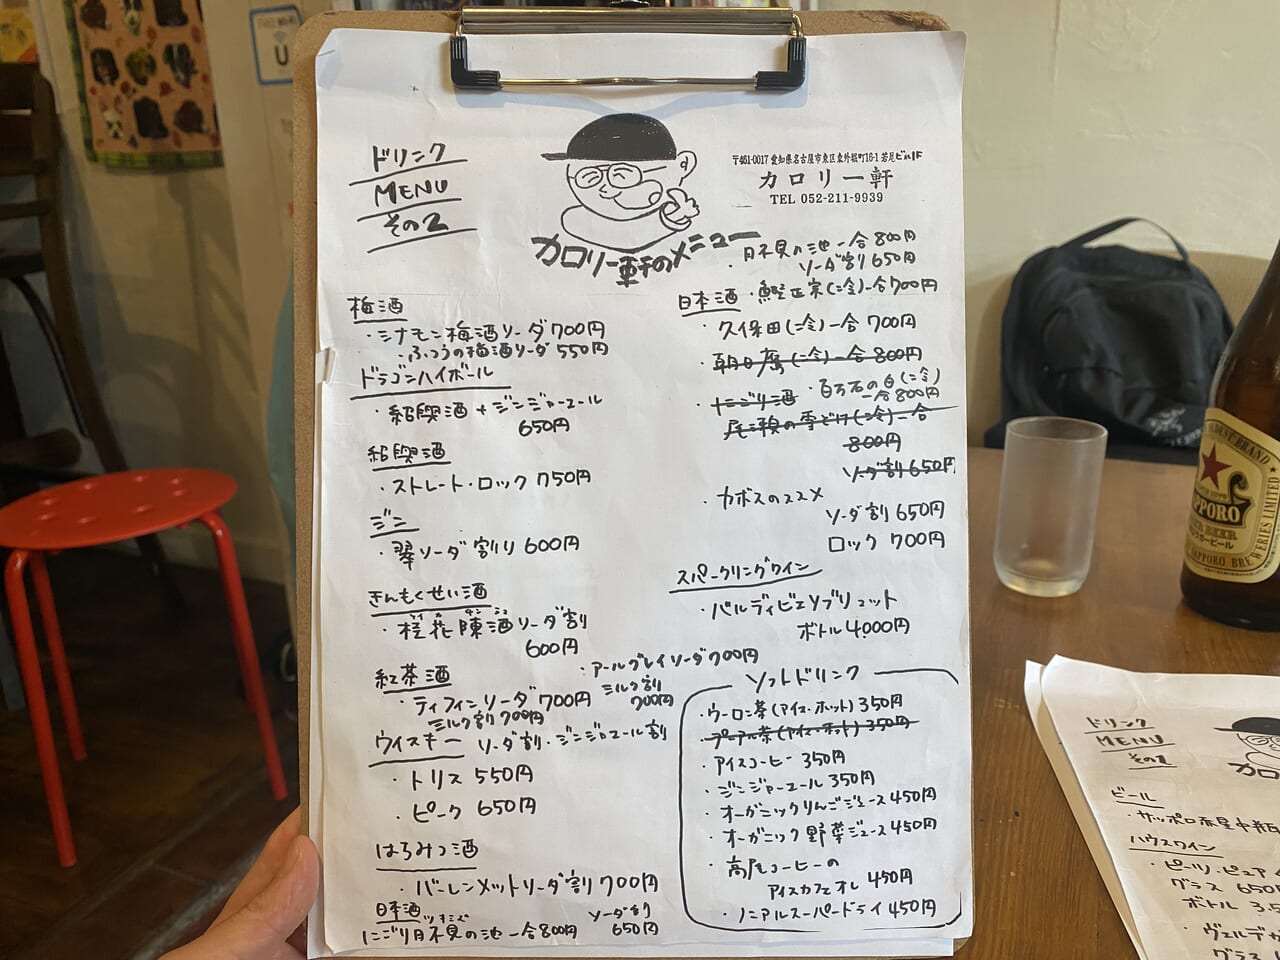 ドリンク
MENU
その2
〒461-0017 愛知県名古屋市東区東外堀町16-1 若尾ビル1F
カロリー軒
TEL 052-211-9939
カロリー軒のメニュー
梅酒
・シナモン梅酒ソーダ 700円
・ふつうの梅酒ソーダ 550円
ドラゴンハイボール
・紹興酒+ジンジャーエール
650円
紹興酒
・ストレート・ロック 750円
ジン
・翠ソーダ割り 600円
きんもくせい酒
・桂花陳酒ソーダ割
600円
紅茶酒
・ティフィンソーダ 700円
ミルク割 700円
・アールグレイソーダ 700円
ミルク割
700円
ウイスキー ソーダ割・ジンジャエール割
・トリス 550円
・ピーク 650円
はちみつ酒
・バーレンメットソーダ割 700円
日本酒
にごり月不見の池 一合800円
ソーダ割
650円
・月不見の池 一合 800円
ソーダ割 650円
日本酒 ・鯉正宗(冷)一合700円
・久保田(冷)一合 700円
・朝日鷹(冷)一合 800円
・にごり酒 ・百万石の白(冷)
一合800円
尾瀬の雪どけ(冷)一合
800円
ソーダ割 650円
・カボスのススメ
ソーダ割 650円
ロック 700円
スパークリングワイン
・バルディビエソブリュット
ボトル4000円
ソフトドリンク
・ウーロン茶(アイス・ホット) 350円
・プーアル茶(アイス・ホット) 350円
・アイスコーヒー 350円
・ジンジャーエール 350円
・オーガニックりんごジュース 450円
・オーガニック野菜ジュース 450円
・高尾コーヒーの
アイスカフェオレ 450円
・ノンアルスーパードライ 450円
SAPPORO
ドリンク
MENU
その2
カロ
ビール
・サッポロ赤星中瓶
ハウスワイン
・ピーツ・ピュア
グラス 650
ボトル 3.5
・ヴェルデ
グラス